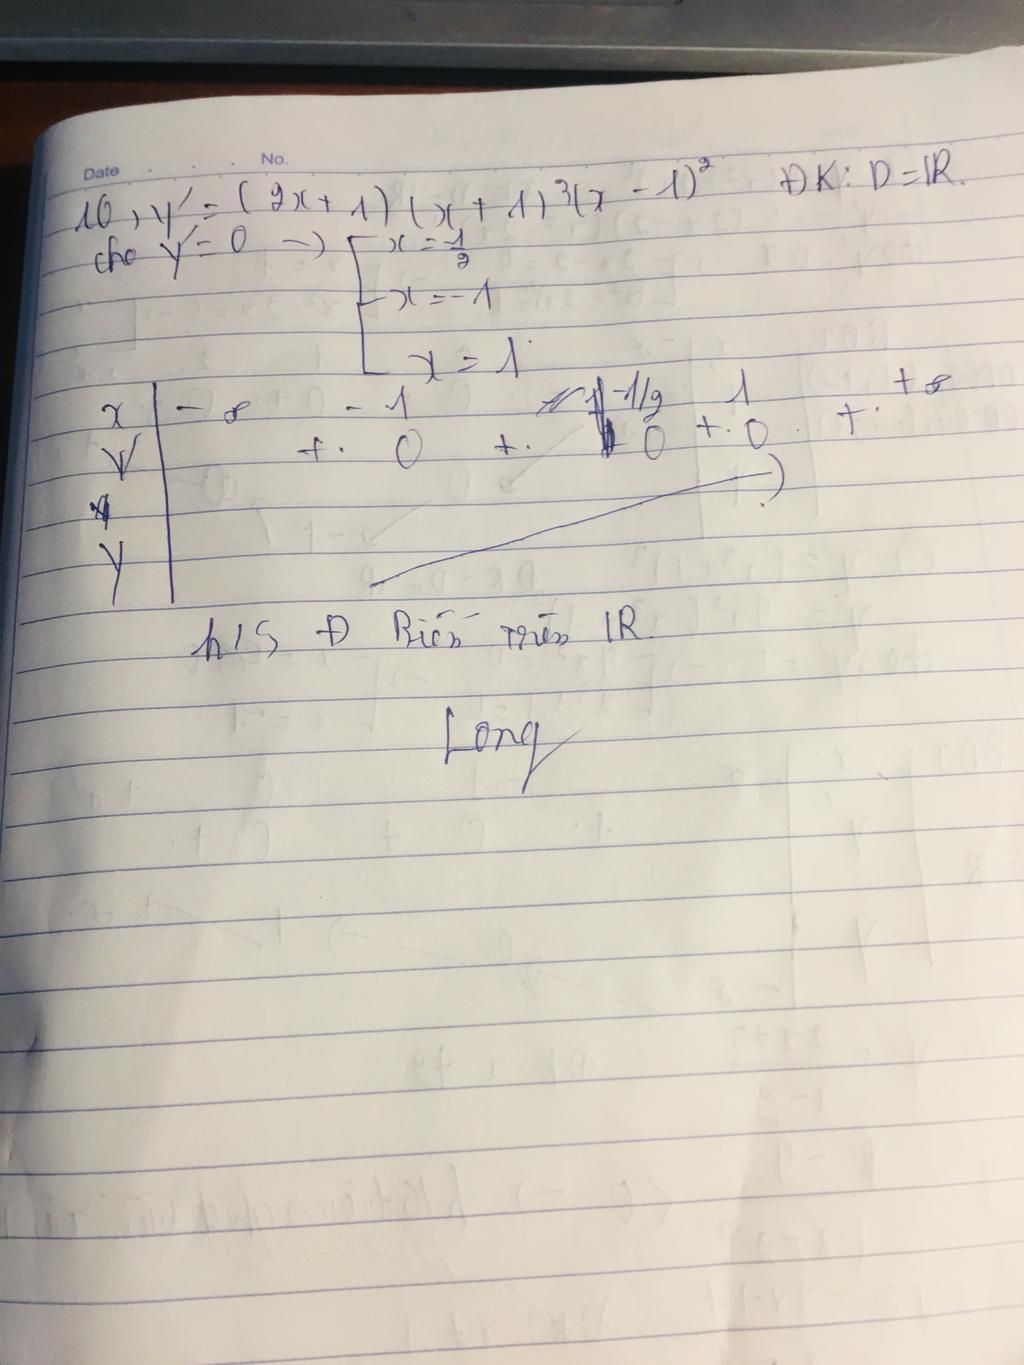 Date No.
10, y' = (2x + 1) (x + 1)³(x - 1)² ĐK: D = IR.
cho y' = 0 → x = 1/2
x = -1
x = 1
x -∞ -1 -1/2 1 +∞
y' + 0 + 0 + 0 +
y
h/s Đ Biến trên IR.
Long